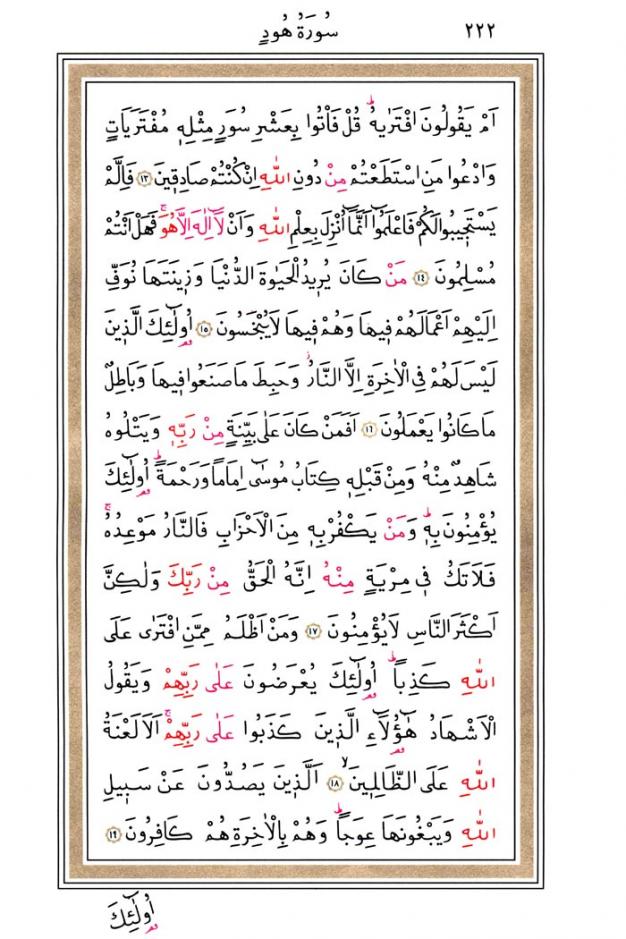 سُورَةُ هُودٍ ٢٢٢
اَمْ يَقُولُونَ افْتَرٰيهُۜ قُلْ فَأْتُوا بِعَشْرِ سُوَرٍ مِثْلِه۪ مُفْتَرَيَاتٍ
وَادْعُوا مَنِ اسْتَطَعْتُمْ مِنْ دُونِ اللّٰهِ اِنْ كُنْتُمْ صَادِق۪ينَ ﴿١٣﴾ فَاِلَّمْ
يَسْتَج۪يبُوا لَكُمْ فَاعْلَمُٓوا اَنَّمَٓا اُنْزِلَ بِعِلْمِ اللّٰهِ وَاَنْ لَٓا اِلٰهَ اِلَّا هُوَۚ فَهَلْ اَنْتُمْ
مُسْلِمُونَ ﴿١٤﴾ مَنْ كَانَ يُر۪يدُ الْحَيٰوةَ الدُّنْيَا وَز۪ينَتَهَا نُوَفِّ
اِلَيْهِمْ اَعْمَالَهُمْ ف۪يهَا وَهُمْ ف۪يهَا لَا يُبْخَسُونَ ﴿١٥﴾ اُو۬لٰٓئِكَ الَّذ۪ينَ
لَيْسَ لَهُمْ فِي الْاٰخِرَةِ اِلَّا النَّارُۘ وَحَبِطَ مَا صَنَعُوا ف۪يهَا وَبَاطِلٌ
مَا كَانُوا يَعْمَلُونَ ﴿١٦﴾ اَفَمَنْ كَانَ عَلٰى بَيِّنَةٍ مِنْ رَبِّه۪ وَيَتْلُوهُ
شَاهِدٌ مِنْهُ وَمِنْ قَبْلِه۪ كِتَابُ مُوسٰٓى اِمَامًا وَرَحْمَةًۜ اُو۬لٰٓئِكَ
يُؤْمِنُونَ بِه۪ۜ وَمَنْ يَكْفُرْ بِه۪ مِنَ الْاَحْزَابِ فَالنَّارُ مَوْعِدُهُۚ
فَلَا تَكُ ف۪ي مِرْيَةٍ مِنْهُ اِنَّهُ الْحَقُّ مِنْ رَبِّكَ وَلٰكِنَّ
اَكْثَرَ النَّاسِ لَا يُؤْمِنُونَ ﴿١٧﴾ وَمَنْ اَظْلَمُ مِمَّنِ افْتَرٰى عَلَى
اللّٰهِ كَذِبًاۜ اُو۬لٰٓئِكَ يُعْرَضُونَ عَلٰى رَبِّهِمْ وَيَقُولُ
الْاَشْهَادُ هٰٓؤُ۬لَٓاءِ الَّذ۪ينَ كَذَبُوا عَلٰى رَبِّهِمْۚ اَلَا لَعْنَةُ
اللّٰهِ عَلَى الظَّالِم۪ينَۙ ﴿١٨﴾ اَلَّذ۪ينَ يَصُدُّونَ عَنْ سَب۪يلِ
اللّٰهِ وَيَبْغُونَهَا عِوَجًاۜ وَهُمْ بِالْاٰخِرَةِ هُمْ كَافِرُونَ ﴿١٩﴾
اُو۬لٰٓئِكَ